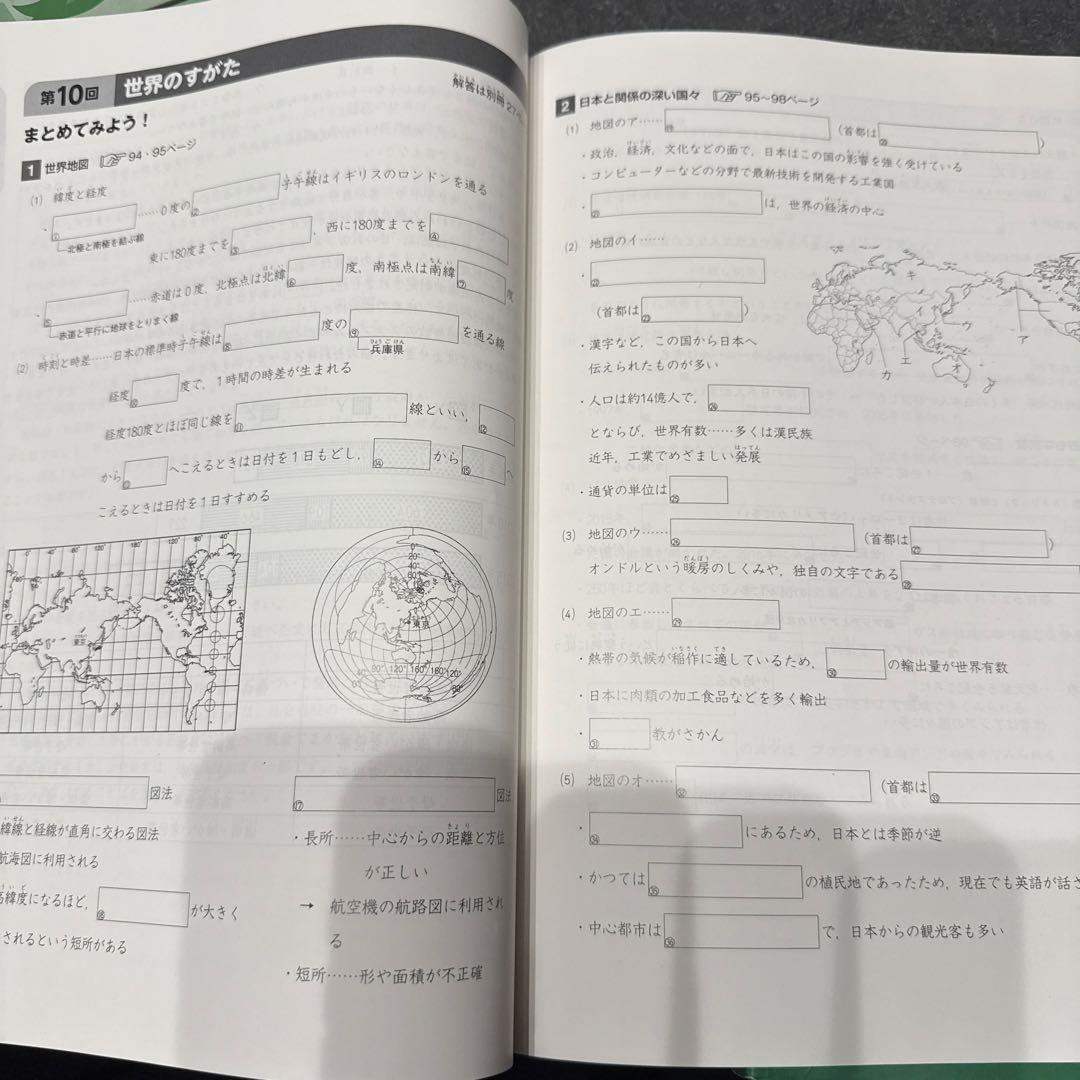 第10回 世界のすがた
解答は別冊27
まとめてみよう！
1 世界地図 94・95ページ
(1) 緯度と経度
・① ……0度の② 子午線はイギリスのロンドンを通る
北極と南極を結ぶ線
東に180度までを③ ，西に180度までを④
⑤ ……赤道は0度，北極点は北緯⑥ 度，南極点は南緯⑦ 度
赤道と平行に地球をとりまく線
(2) 時刻と時差……日本の標準時子午線は⑧ 度の⑨ を通る線
兵庫県
経度⑩ 度で，1時間の時差が生まれる
経度180度とほぼ同じ線を⑪ 線といい，⑫
から⑬ へこえるときは日付を1日もどし，⑭ から⑮ へ
こえるときは日付を1日すすめる
0° 40° 80° 120° 180° 120°
東京
0° 20° 40° 60°
東京
90° 120° 160° 160° 120° 80°
図法
⑰ 図法
緯線と経線が直角に交わる図法
航海図に利用される
高緯度になるほど，⑱ が大きく
されるという短所がある
・長所……中心からの距離と方位
が正しい
→ 航空機の航路図に利用され
る
・短所……形や面積が不正確
2 日本と関係の深い国々 95～98ページ
(1) 地図のア……⑲ （首都は⑳ ）
・政治，経済，文化などの面で，日本はこの国の影響を強く受けている
・コンピューターなどの分野で最新技術を開発する工業国
・㉑ は，世界の経済の中心
(2) 地図のイ……
・㉒
（首都は㉓ ）
・漢字など，この国から日本へ
伝えられたものが多い
・人口は約14億人で，㉔
とならび，世界有数……多くは漢民族
近年，工業でめざましい発展
・通貨の単位は㉕
キ
イ
ウ
ア
エ
カ
オ
(3) 地図のウ……㉖ （首都は㉗ ）
オンドルという暖房のしくみや，独自の文字である㉘
(4) 地図のエ……㉙
・熱帯の気候が稲作に適しているため，㉚ の輸出量が世界有数
・日本に肉類の加工食品などを多く輸出
・㉛ 教がさかん
(5) 地図のオ……㉜ （首都は㉝
・㉞ にあるため，日本とは季節が逆
・かつては㉟ の植民地であったため，現在でも英語が話さ
・中心都市は㊱ で，日本からの観光客も多い